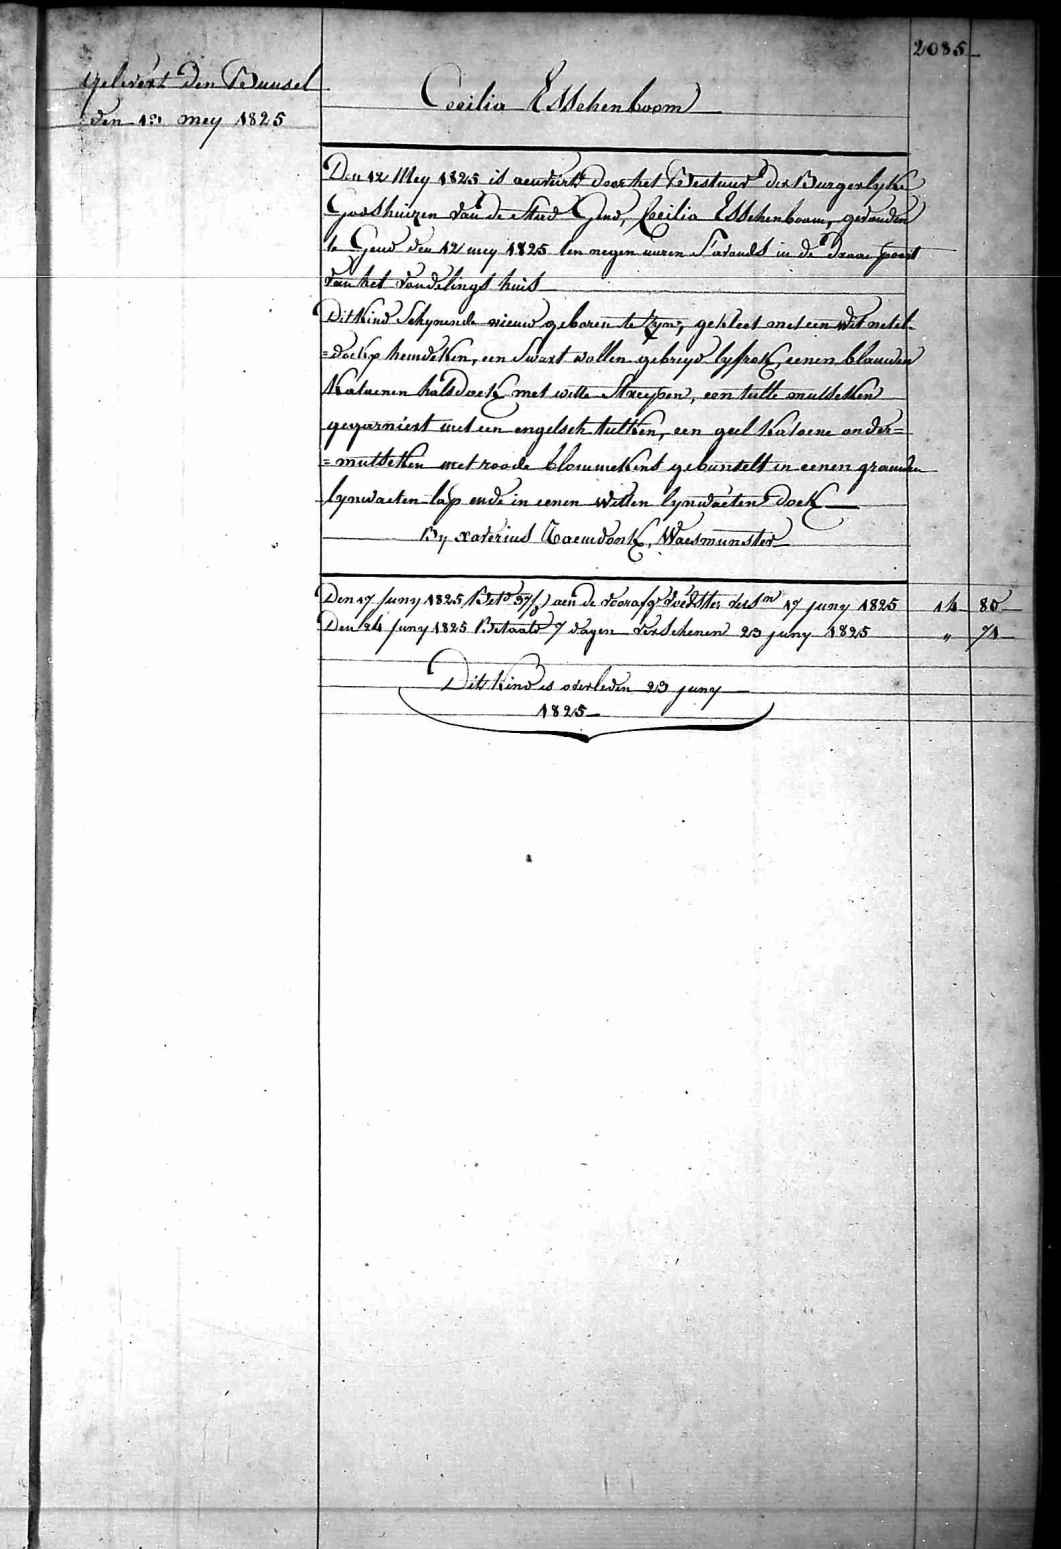 2085
Gelevert den Bunsel
den 13 mey 1825
Cecilia Esschenboom
Den 12 Mey 1825 is aenveirt door het Bestuur der Burgerlyke
Godshuizen van de Stad Gend, Cecilia Esschenboom, gevonden
te Gend den 12 mey 1825 ten negen uuren s'avonds in de draae poort
van het vondelings huis
Dit kind schynende nieuw geboren te zyn, gekleet met een wit netel-
=doekx hemdeken, een swart wollen gebreyd lyfrok, eenen blauwen
katoenen halsdoek met witte streypen, een tulle mutseken
gegarniert met een engelsch tulken, een geel katoene onder=
=mutseken met roode blommekens gebunselt in eenen grauwen
lynwaeten lap ende in eenen witten lynwaeten doek
By xaverius Raemdonk, Waesmunster
Den 17 Juny 1825 Bet. 37/ aen de voorafg. voedster 17 juny 1825 14 80
Den 24 Juny 1825 Betaald 7 dagen verschenen 23 juny 1825 " 71
Dit kind is overleden 23 juny
1825